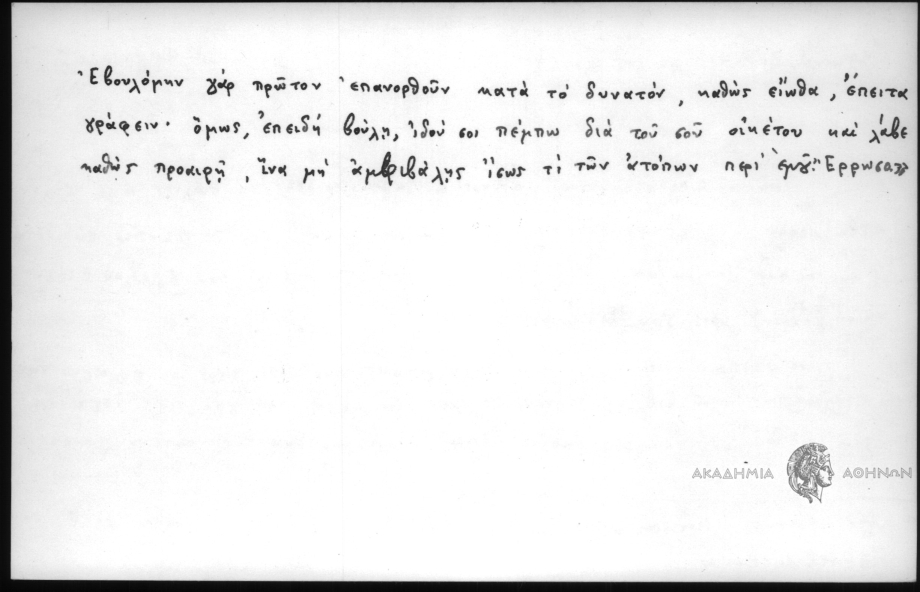 Ἐβουλόμην γάρ πρῶτον ἐπανορθοῦν κατὰ τό δυνατόν, καθὼς εἴωθα, ἔπειτα
γράφειν· ὅμως, ἐπειδή βούλῃ, ἰδού σοι πέμπω διά τοῦ σοῦ οἰκέτου καί λάβε
καθὼς προαιρῇ, ἵνα μή ἀμφιβάλῃς ἴσως τί τῶν ἀτόπων περί ἐμοῦ. Ἔρρωσο»
ΑΚΑΔΗΜΙΑ ΑΘΗΝΩΝ